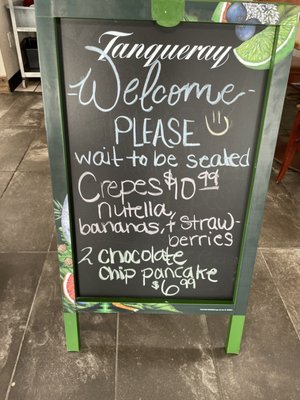 Tanqueray
Welcome
PLEASE
wait to be seated
Crepes $10 99
nutella,
bananas, + straw-
berries
2 chocolate
chip pancake
$6 99